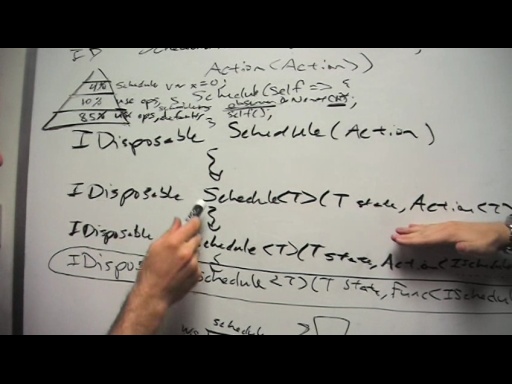 Action<Action>)
4% Schedule var x=0;
Schedule(self => {
10% use ops, s.
85% use ops, defaults,
self();
IDisposable Schedule(Action)
{
IDisposable Schedule<T>(T state, Action<T>
{
IDisposable Schedule<T>(T state, Action<ISchedule
IDispos Schedule<T>(T state, Func<ISchedul
schedule